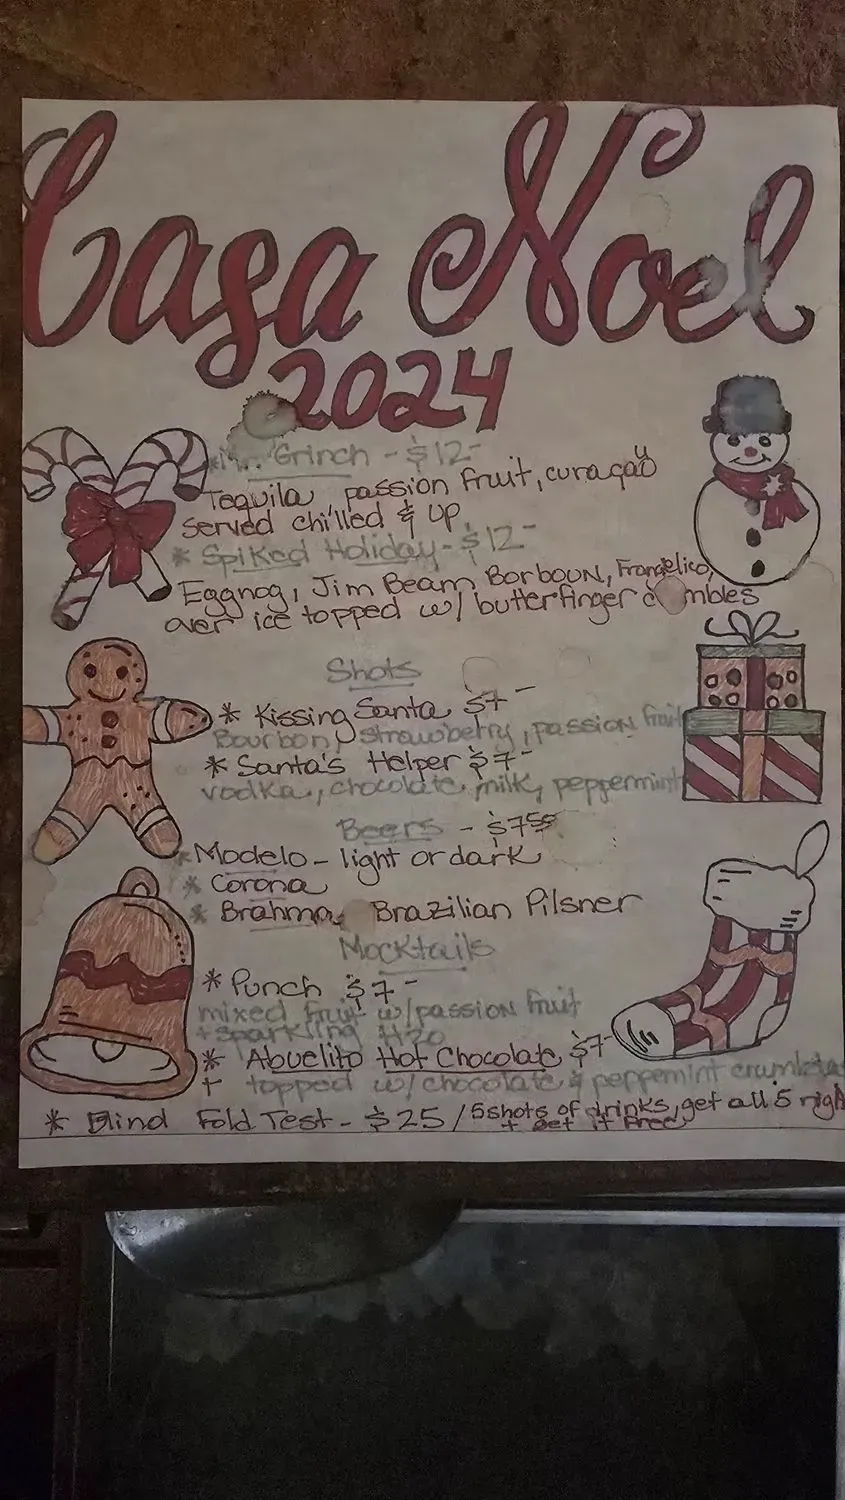 Casa Noel
2024
* Mr. Grinch - $12-
Tequila passion fruit, curaçaö
served chilled & up
* Spiked Holiday - $12-
Eggnog, Jim Beam Borboun, Frangelico,
over ice topped w/ butterfinger c mbles
Shots
* Kissing Santa $7-
Bourbon, strawberry, passion fruit
* Santa's Helper $7-
vodka, chocolate, milk, peppermint
Beers - $7.50
* Modelo - light or dark
* Corona
* Brahma, Brazilian Pilsner
Mocktails
* Punch $7-
mixed fruit w/passion fruit
+ sparkling H20
* Abuelito Hot Chocolate $7-
+ topped w/chocolate & peppemint
* Blind Fold Test - $25 / 5 shots of drinks, get all 5 righ
+ get it free